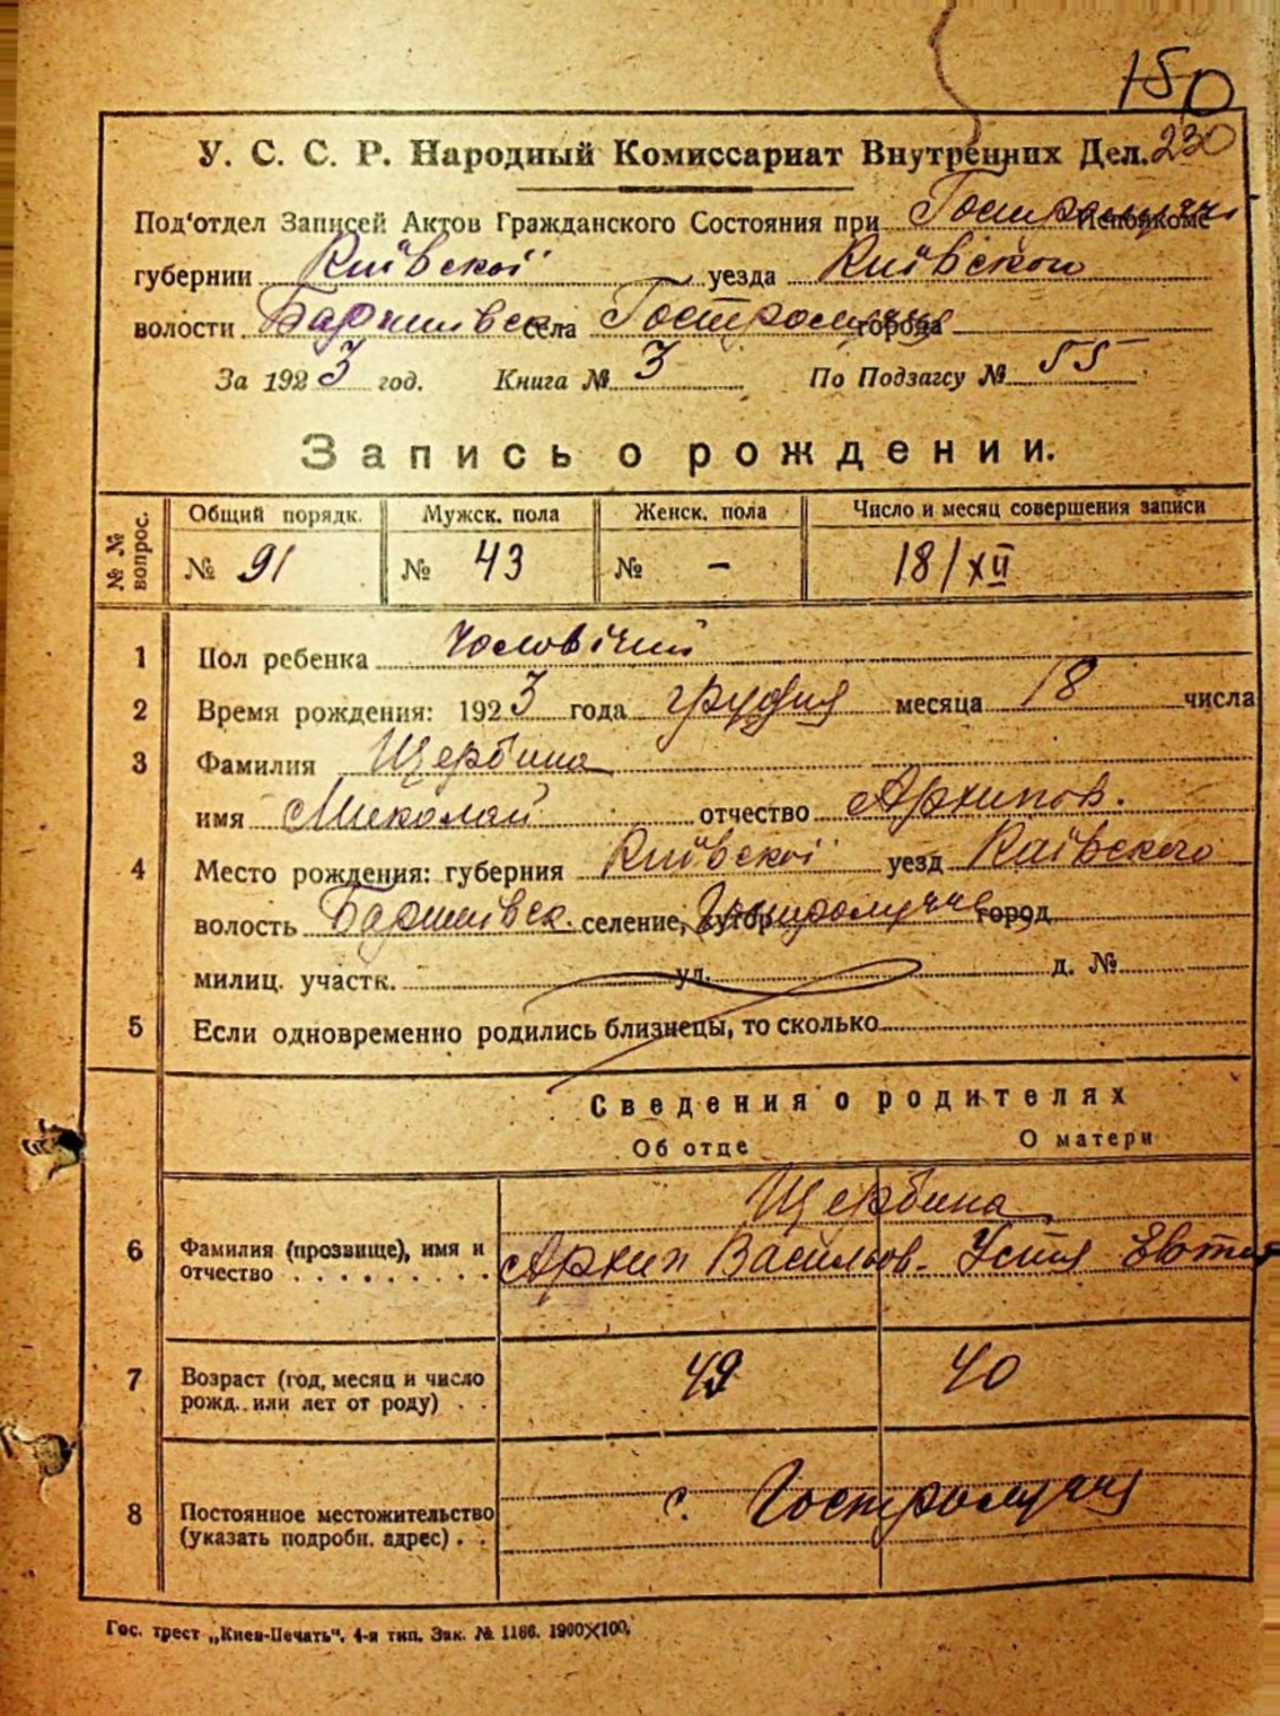 150
У. С. С. Р. Народный Комиссариат Внутренних Дел. 230
Под'отдел Записей Актов Гражданского Состояния при Исполкоме
губернии Київської уезда Київского
волости села города
За 1923 год. Книга № 3 По Подзагсу № 55
Запись о рождении.
№ № вопрос. Общий порядк. Мужск. пола Женск. пола Число и месяц совершения записи
№ 91 № 43 № - 18/XII
1 Пол ребенка Чоловічий
2 Время рождения: 1923 года грудня месяца 18 числа
3 Фамилия Щербина
имя Миколай отчество Архипов.
4 Место рождения: губерния Київскої уезд Київского
волость селение, хутор город
милиц. участк. ул. д. №
5 Если одновременно родились близнецы, то сколько
Сведения о родителях
Об отце О матери
Щербина
6 Фамилия (прозвище), имя и отчество . . . . . . . . . Архип Васильов. Устя
7 Возраст (год, месяц и число рожд. или лет от роду) . . 49 40
8 Постоянное местожительство (указать подробн. адрес) . . с.
Гос. трест „Киев-Печать". 4-я тип. Зак. № 1186. 1900×100.